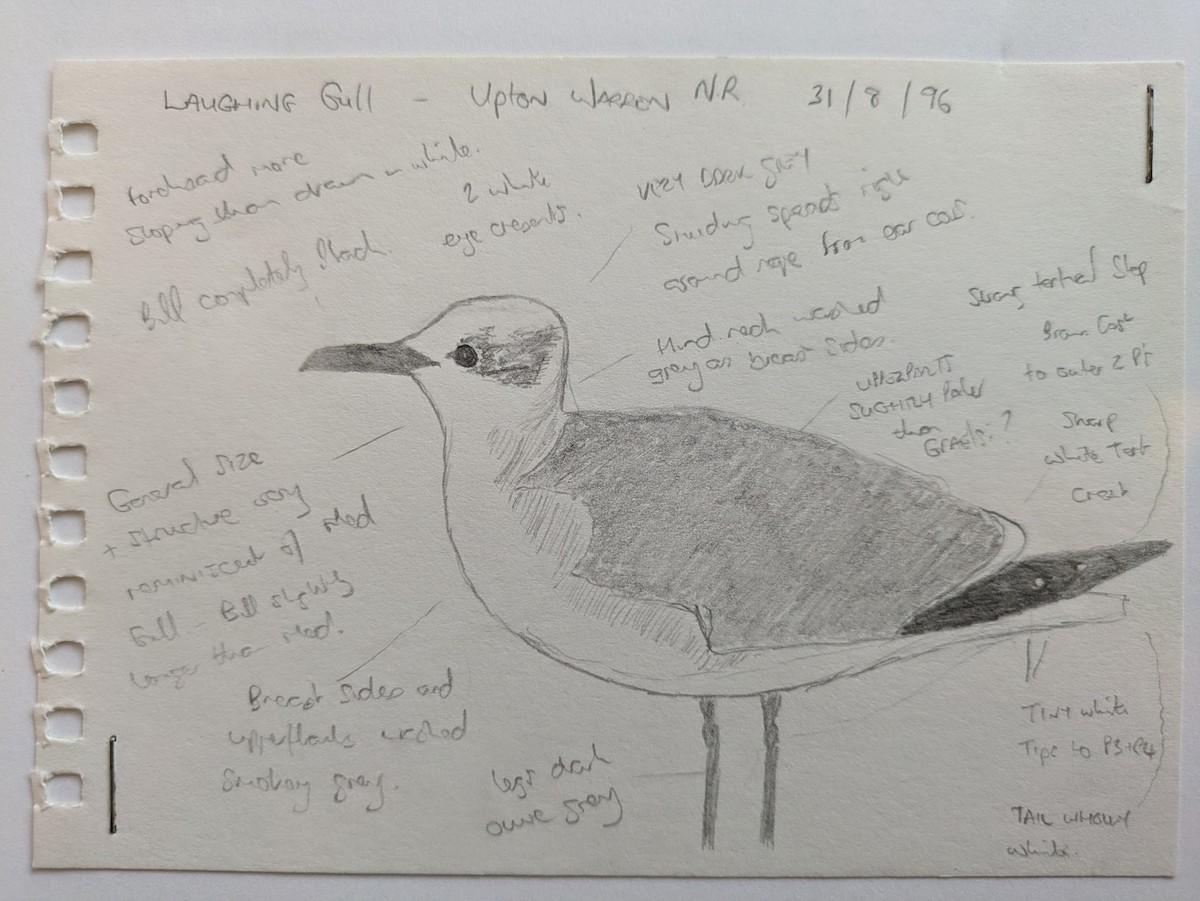 LAUGHING Gull - UPTON WARREN N.R. 31/8/96
forehead more
sloping than drawn + white.
Bill completely black.
2 white
eye cresents.
VERY DARK GREY
Smudging spreads right
around nape from ear covs.
Hind neck washed
grey as breast sides.
UPPERPARTS
SLIGHTLY Paler
than
GRAELLS.?
Strong tertial Step
Brown Cast
to outer 2 P's
Sharp
white Tert
Cresh
General size
+ structure very
reminiscent of Med
Gull - Bill slightly
longer than Med.
Breast sides and
upperflanks washed
Smokey grey.
legs dark
olive grey
TINY white
Tips to P3+P4
TAIL WHOLLY
white.